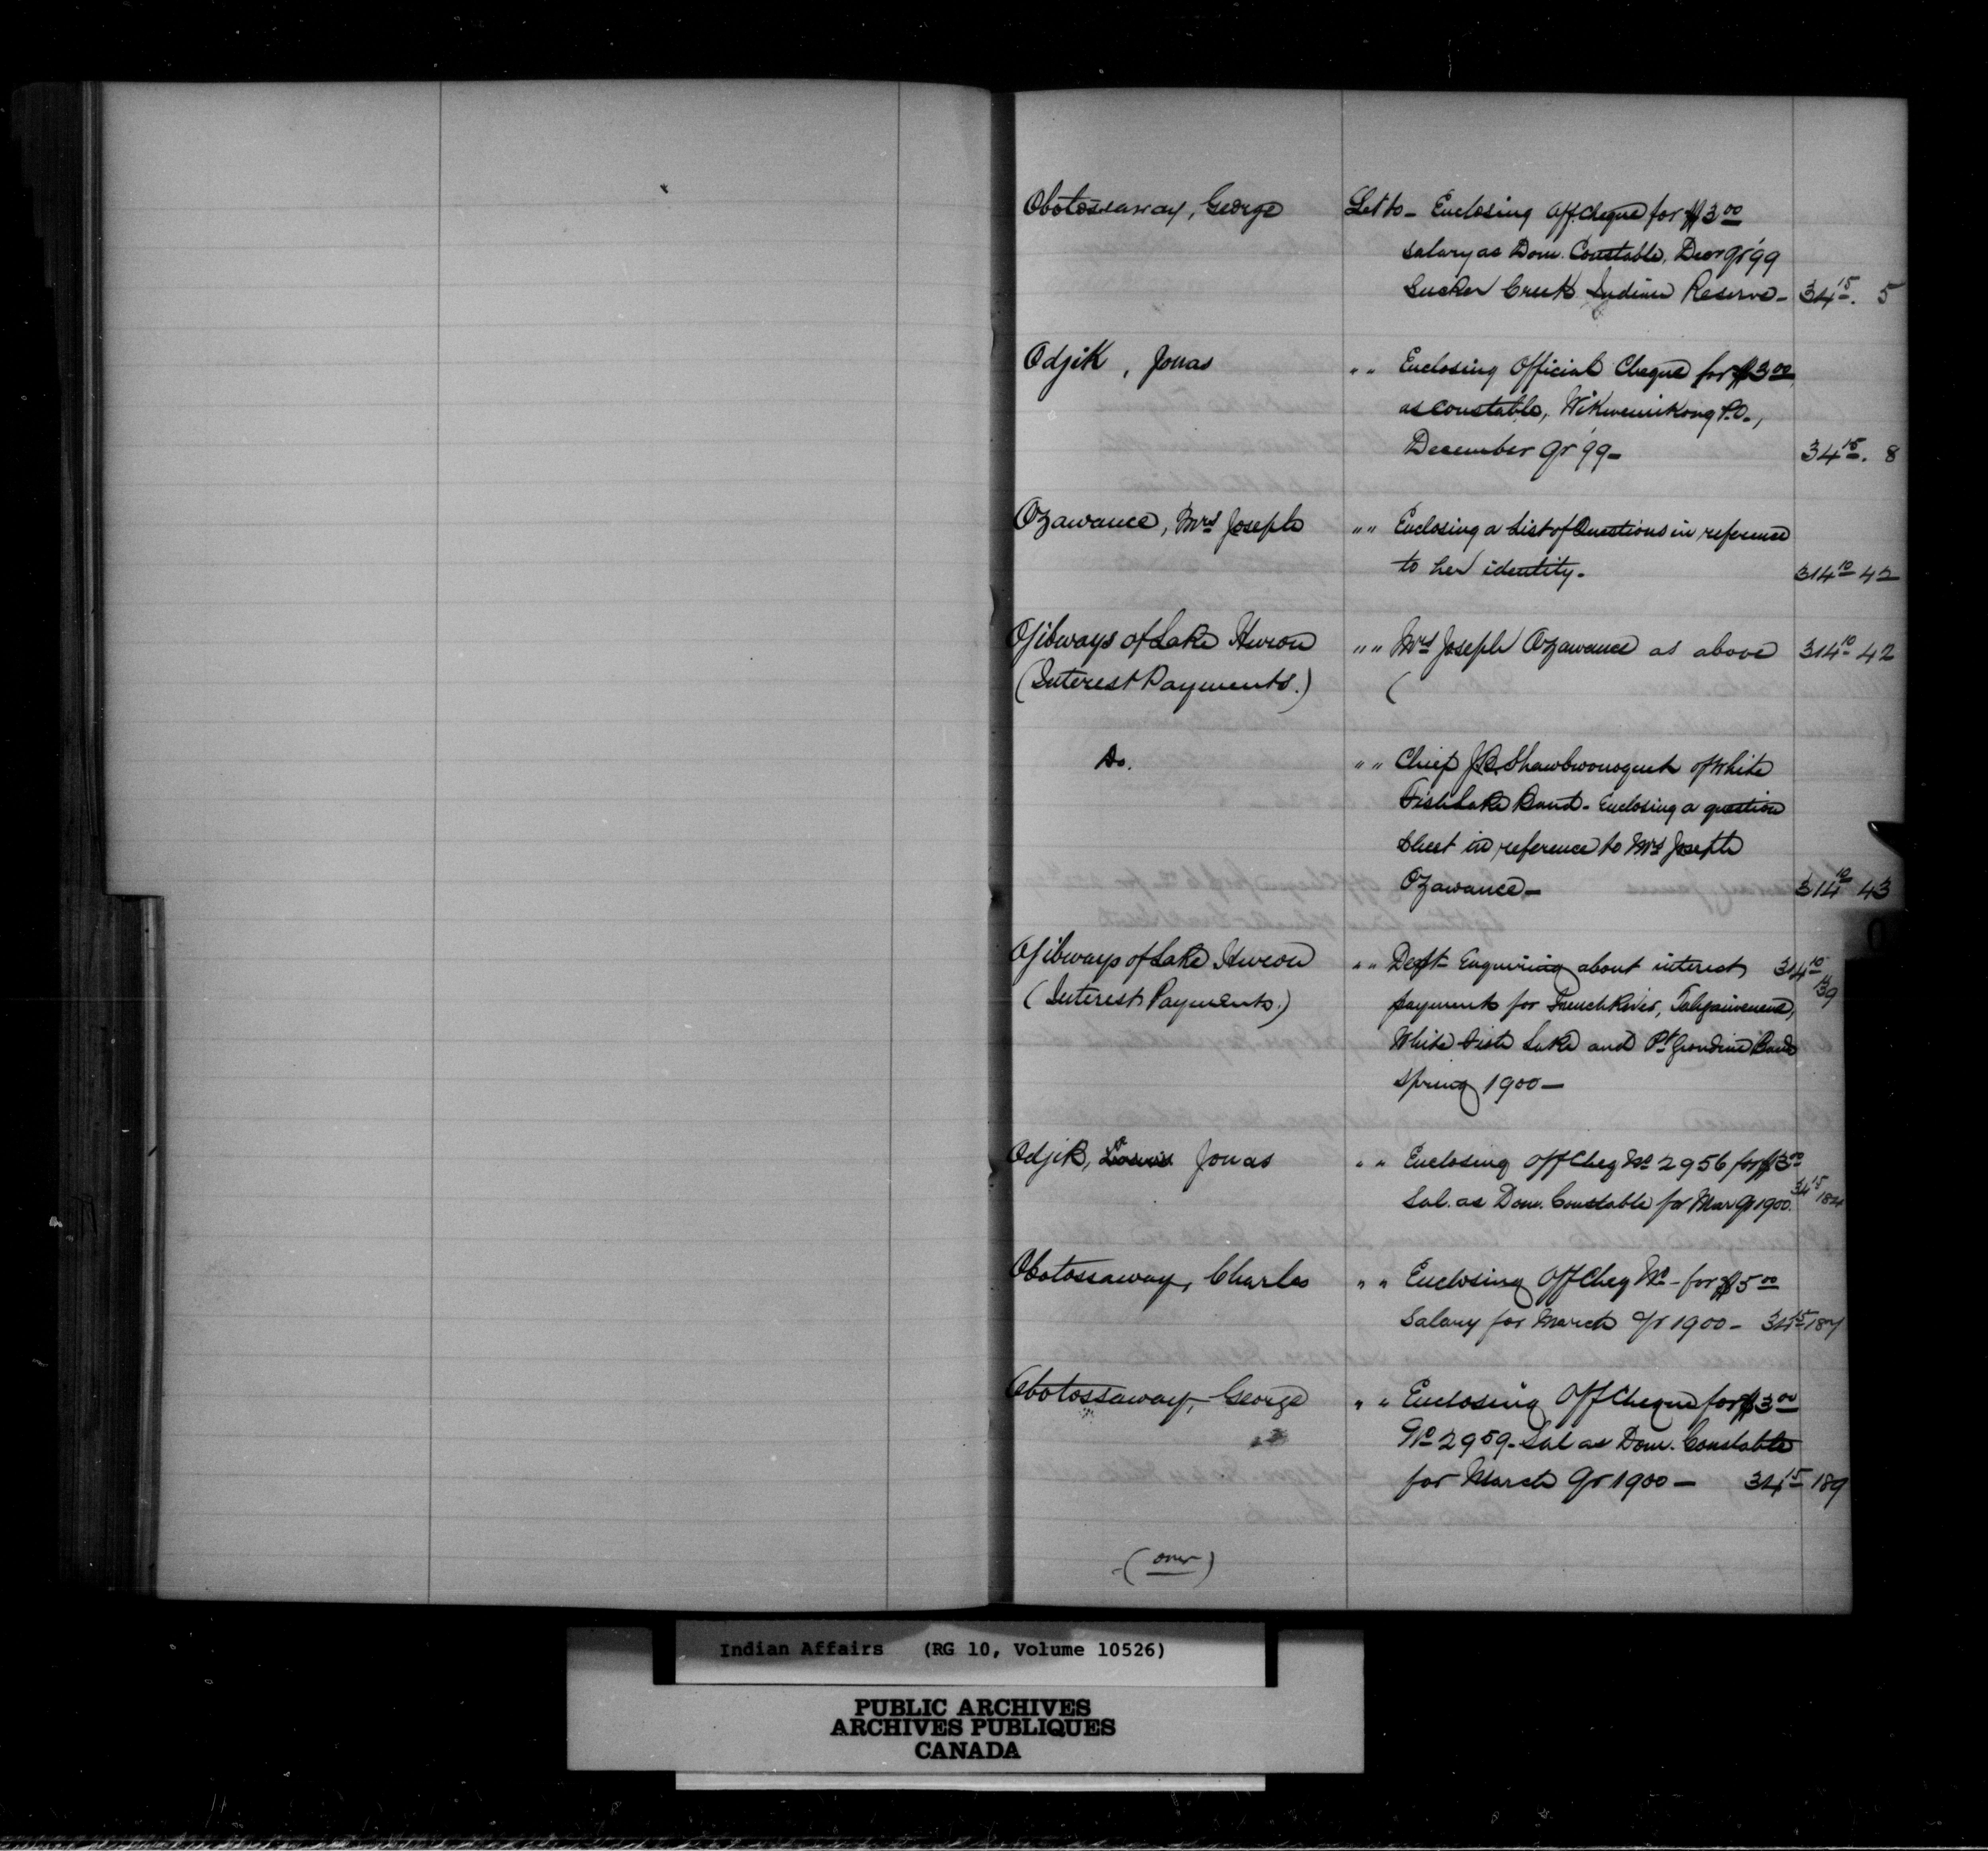 Obotossaway, George Let to - Enclosing Off. Cheque for $3 00
salary as Dom. Constable, Decr qr '99
Sucker Creek Indian Reserve - 34 15. 5
Odjik, Jonas " " Enclosing Official Cheque for $3 00
as constable, Wikwemikong P.O.,
December qr '99 - 34 15. 8
Ozawance, Mrs Joseph " " Enclosing a List of Questions in reference
to her identity. 314 10 42
Ojibways of Lake Huron " " Mrs Joseph Ozawance as above 314 10 42
(Interest Payments.) (
Do. " " Chief J.B. Shawbwonoquet of White
Fish Lake Band - Enclosing a question
sheet in reference to Mrs Joseph
Ozawance - 314 10 43
Ojibways of Lake Huron " " Dept - Enquiring about interest 314 10
(Interest Payments.) payments for French River, 39
White Fish Lake and Pt Grondine Bands
Spring 1900 -
Odjik, Jonas " " Enclosing Off Cheq No 2956 for $3 00
Sal. as Dom. Constable for Mar qr 1900. 34 15
Obotossaway, Charles " " Enclosing Off Cheq No - for $5 00
Salary for March qr 1900 - 34 15 187
Obotossaway, George " " Enclosing Off Cheque for $3 00
No 2959 - Sal as Dom. Constable
for March qr 1900 - 34 15 189
(over)
Indian Affairs (RG 10, Volume 10526)
PUBLIC ARCHIVES
ARCHIVES PUBLIQUES
CANADA